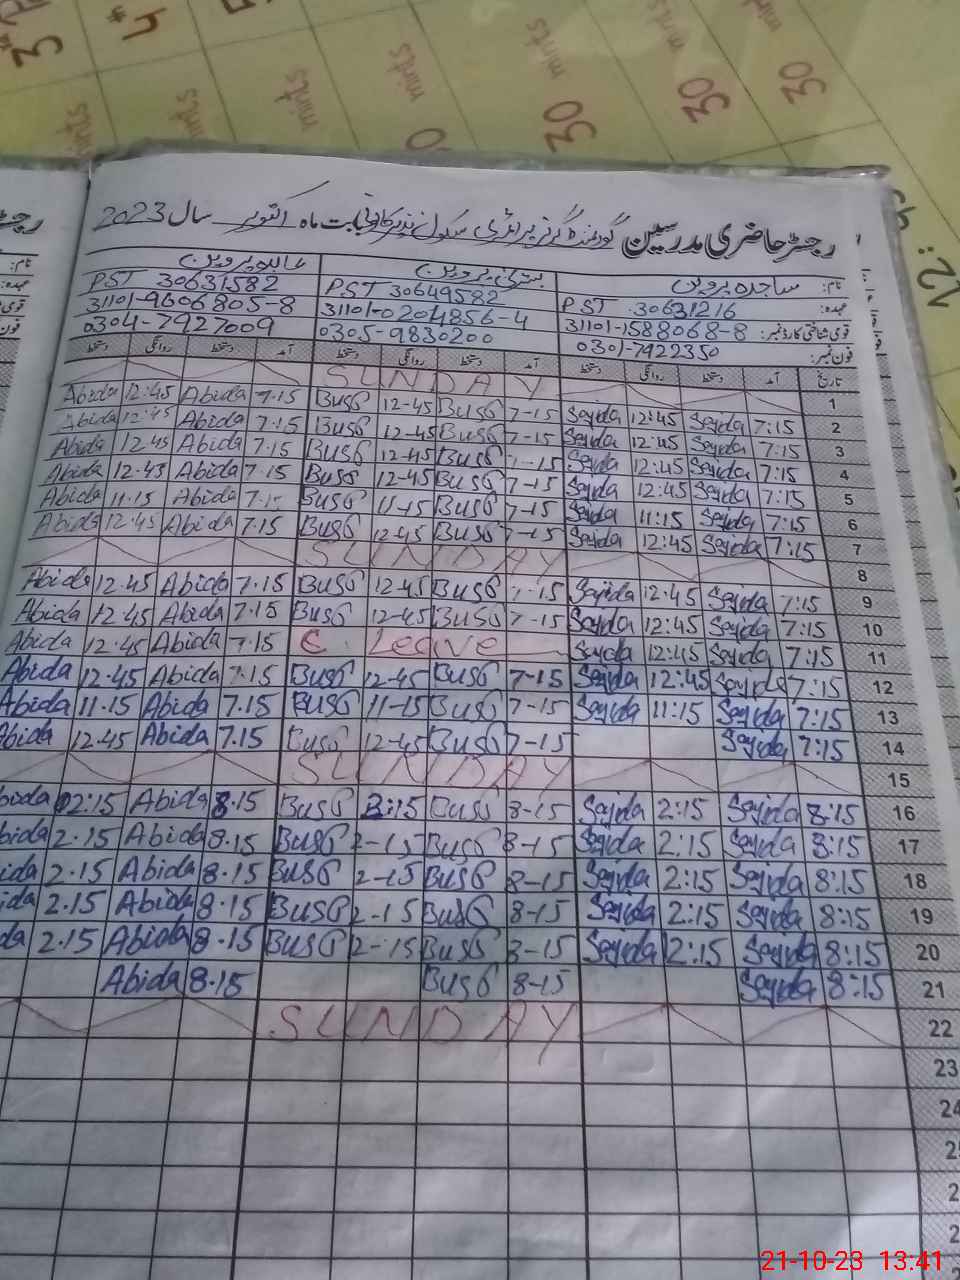 رجسٹر حاضری مدرسین گورنمنٹ گرلز پرائمری سکول بابت ماہ اکتوبر سال 2023
نام: ساجدہ پروین بشریٰ پروین عابدہ پروین
عہدہ: PST 30631216 PST 30649582 PST 30631582
قومی شناختی کارڈ نمبر: 31101-1588068-8 31101-0204856-4 31101-9606805-8
فون نمبر: 0301-7922350 0305-9830200 0304-7927009
تاریخ آمد دستخط روانگی دستخط آمد دستخط روانگی دستخط آمد دستخط روانگی دستخط
SUNDAY 1
Abida 12:45 Abida 7.15 BusG 12-45 BusG 7-15 Sajda 12:45 Sajda 7:15 2
Abida 12:45 Abida 7.15 BusG 12-45 BusG 7-15 Sajda 12:45 Sajda 7:15 3
Abida 12.45 Abida 7.15 BusG 12-45 BusG 7-15 Sajda 12:45 Sajda 7:15 4
Abida 12.45 Abida 7.15 BusG 12-45 BusG 7-15 Sajda 12:45 Sajda 7:15 5
Abida 11.15 Abida 7.15 BusG 11-15 BusG 7-15 Sajda 11:15 Sajda 7:15 6
Abida 12.45 Abida 7.15 BusG 12-45 BusG 7-15 Sajda 12:45 Sajda 7:15 7
SUNDAY 8
Abida 12.45 Abida 7.15 BusG 12-45 BusG 7-15 Sajda 12:45 Sajda 7:15 9
Abida 12.45 Abida 7.15 BusG 12-45 BusG 7-15 Sajda 12:45 Sajda 7:15 10
Abida 12.45 Abida 7.15 C. Leave Sajda 12:45 Sajda 7:15 11
Abida 12.45 Abida 7.15 BusG 12-45 BusG 7-15 Sajda 12:45 Sajda 7:15 12
Abida 11.15 Abida 7.15 BusG 11-15 BusG 7-15 Sajda 11:15 Sajda 7:15 13
Abida 12.45 Abida 7.15 BusG 12-45 BusG 7-15 Sajda 7:15 14
SUNDAY 15
bida 02:15 Abida 8.15 BusG 2:15 BusG 8-15 Sajda 2:15 Sajda 8:15 16
bida 2.15 Abida 8.15 BusG 2-15 BusG 8-15 Sajda 2:15 Sajda 8:15 17
ida 2.15 Abida 8.15 BusG 2-15 BusG 8-15 Sajda 2:15 Sajda 8:15 18
ida 2.15 Abida 8.15 BusG 2-15 BusG 8-15 Sajda 2:15 Sajda 8:15 19
da 2.15 Abida 8.15 BusG 2-15 BusG 8-15 Sajda 2:15 Sajda 8:15 20
Abida 8.15 BusG 8-15 Sajda 8:15 21
SUNDAY 22
23
24
21-10-23 13:41